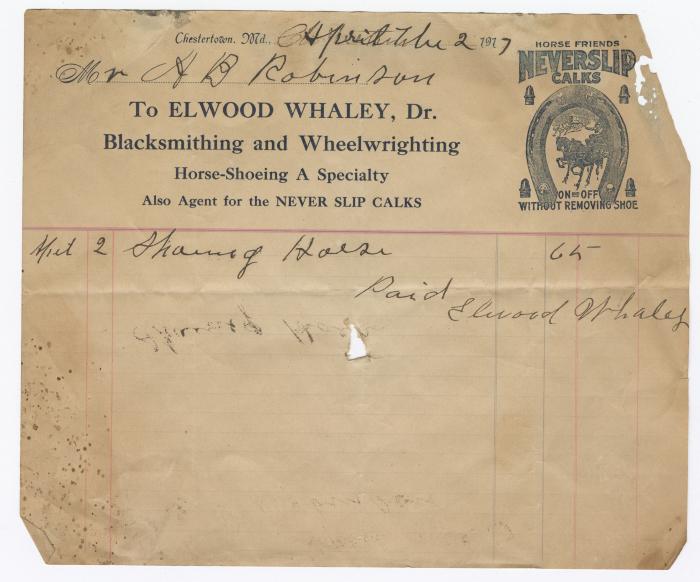 Chestertown, Md., April 2 1917
Mr A B Robinson
To ELWOOD WHALEY, Dr.
Blacksmithing and Wheelwrighting
Horse-Shoeing A Specialty
Also Agent for the NEVER SLIP CALKS
HORSE FRIENDS
NEVERSLIP
CALKS
ON AND OFF
WITHOUT REMOVING SHOE
April 2 Shoeing Horse 65
Paid
Elwood Whaley